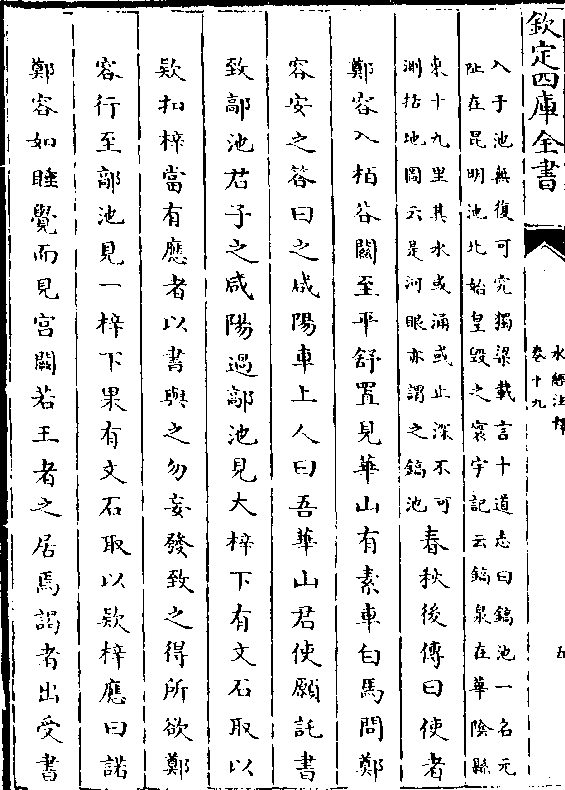 欽定四庫全書
水經注釋
卷十九
五
入于池無復可究獨梁載言十道志曰鎬池一名元
阯在昆明池北始皇毀之寰宇記云鎬泉在華陰縣
東十九里其水或涌或止深不可
測括地圖云是河眼亦謂之鎬池
春秋後傳曰使者
鄭容入栢谷關至平舒置見華山有素車白馬問鄭
容安之答曰之咸陽車上人曰吾華山君使願託書
致鄗池君子之咸陽過鄗池見大梓下有文石取以
欵扣梓當有應者以書與之勿妄發致之得所欲鄭
容行至鄗池見一梓下果有文石取以欵梓應曰諾
鄭容如睡覺而見宮闕若王者之居焉謁者出受書